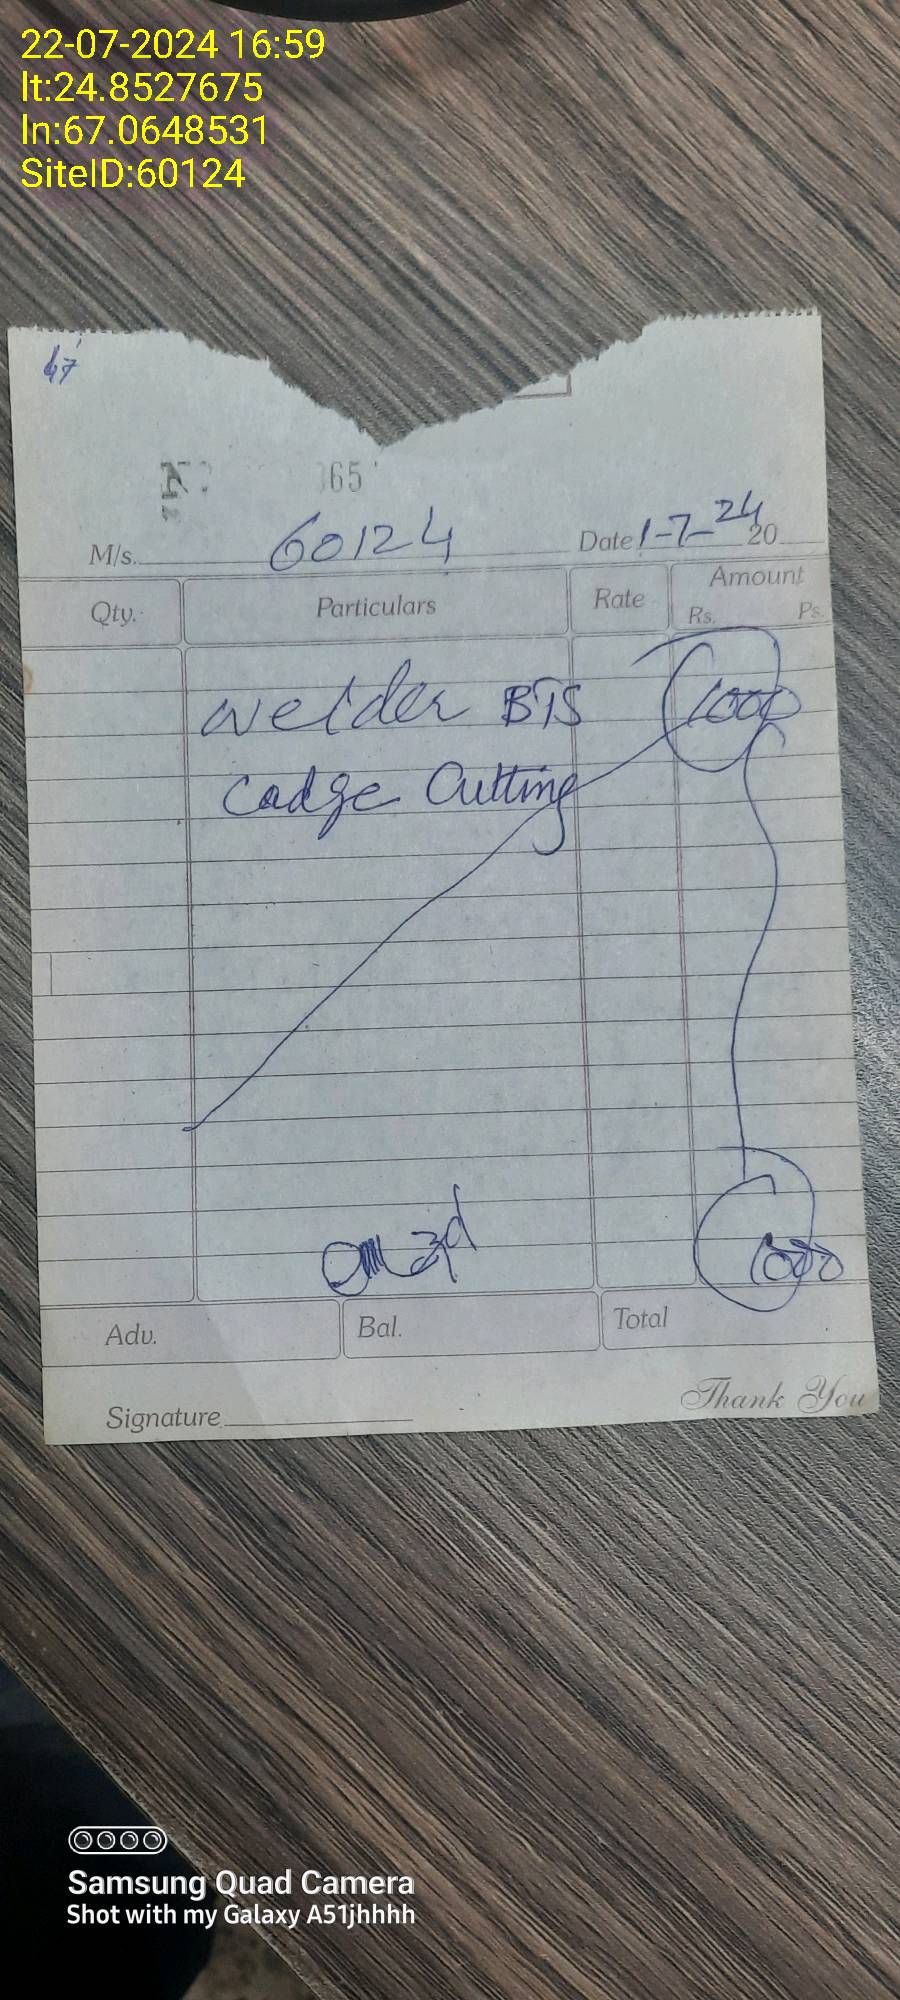 22-07-2024 16:59
lt:24.8527675
ln:67.0648531
SiteID:60124
47
65
M/s. 60124 Date 1-7-24 20
Qty. Particulars Rate Amount
Rs. Ps.
welder BTS 1000
Cadge Cutting
1000
Adv. Bal. Total
Thank You
Signature
Samsung Quad Camera
Shot with my Galaxy A51jhhhh